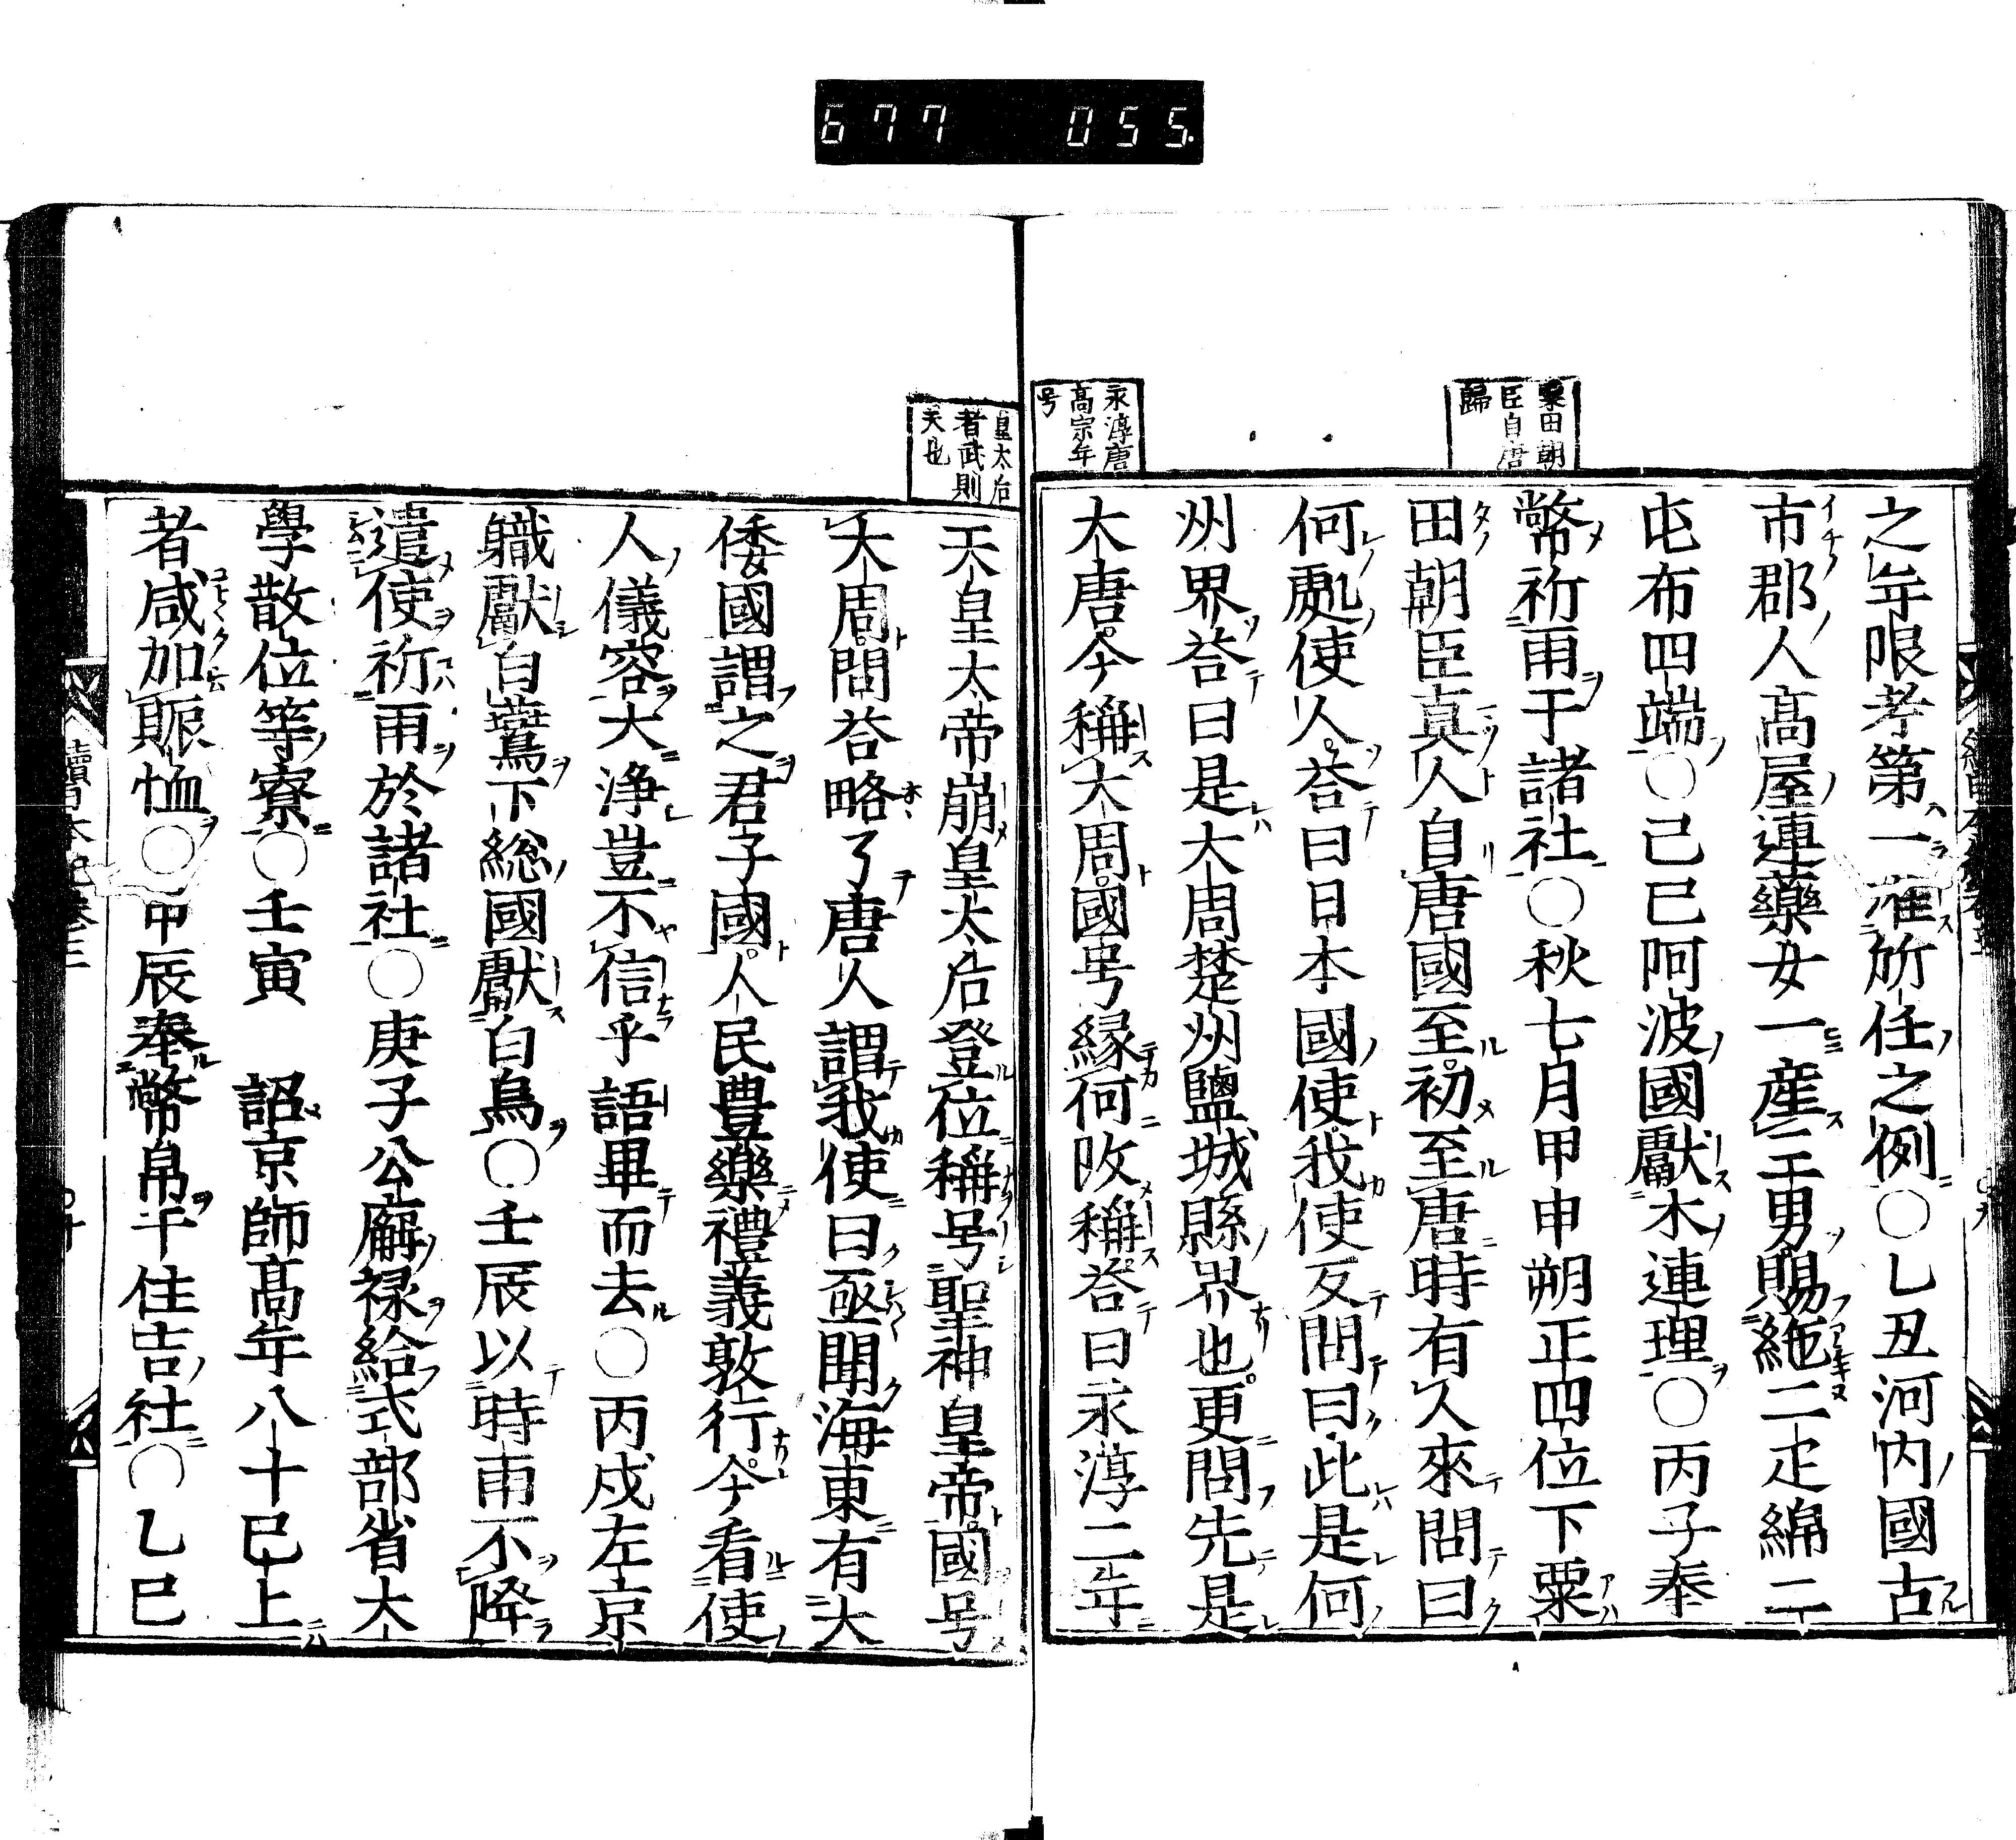 677 055.
粟田朝
臣自唐
歸
永淳唐
高宗年
号
之年限考第一准所任之例○乙丑河内國古
市郡人髙屋連藥女一産三男賜絁二疋綿二
屯布四端○己巳阿波國獻木連理○丙子奉
幣祈雨于諸社○秋七月甲申朔正四位下粟
田朝臣真人自唐國至初至唐時有人來問曰
何處使人荅曰日本國使我使反問曰此是何
州界荅曰是大周楚州鹽城縣界也更問先是
大唐今稱大周國号縁何改稱荅曰永淳二年
皇太后
者武則
天也
天皇太帝崩皇太后登位稱号聖神皇帝國号
大周問荅略了唐人謂我使曰亟聞海東有大
倭國謂之君子國人民豊樂禮義敦行今看使
人儀容大浄豈不信乎語畢而去○丙戌左京
職獻白鷰下総國獻白烏○壬辰以時雨不降
遣使祈雨於諸社○庚子公廨禄給式部省大
學散位等寮○壬寅　詔京師髙年八十已上
者咸加賑恤○甲辰奉幣帛于住吉社○乙巳
續日本紀卷三